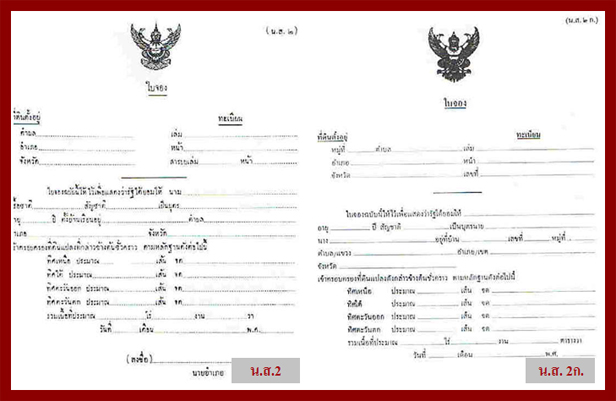 ( น.ส. ๒ )
ใบจอง
ที่ดินตั้งอยู่ ทะเบียน
ตำบล เล่ม
อำเภอ หน้า
จังหวัด สารบบเล่ม หน้า
ใบจองฉบับนี้ให้ไว้เพื่อแสดงว่ารัฐได้ยอมให้ นาย
เชื้อชาติ สัญชาติ เป็นบุตร
อายุ ปี ตั้งบ้านเรือนอยู่ ตำบล
อำเภอ จังหวัด
เข้าครอบครองที่ดินแปลงที่กล่าวข้างต้นชั่วคราว ตามหลักฐานดังต่อไปนี้
ทิศเหนือ ประมาณ เส้น จด
ทิศใต้ ประมาณ เส้น จด
ทิศตะวันออก ประมาณ เส้น จด
ทิศตะวันตก ประมาณ เส้น จด
รวมเนื้อที่ประมาณ ไร่ งาน วา
วันที่ เดือน พ.ศ.
(ลงชื่อ)
นายอำเภอ
น.ส.2
(น.ส. ๒ ก.)
ใบจอง
ที่ดินตั้งอยู่ ทะเบียน
หมู่ที่ ตำบล เล่ม
อำเภอ หน้า
จังหวัด เลขที่
ใบจองฉบับนี้ให้ไว้เพื่อแสดงว่ารัฐได้ยอมให้
อายุ ปี สัญชาติ เป็นบุตรนาย
นาง อยู่ที่บ้าน เลขที่ หมู่ที่
ตำบล/แขวง อำเภอ/เขต
จังหวัด
เข้าครอบครองที่ดินแปลงดังกล่าวข้างต้นชั่วคราว ตามหลักฐานดังต่อไปนี้
ทิศเหนือ ประมาณ เส้น จด
ทิศใต้ ประมาณ เส้น จด
ทิศตะวันออก ประมาณ เส้น จด
ทิศตะวันตก ประมาณ เส้น จด
รวมเนื้อที่ประมาณ ไร่ งาน ตารางวา
วันที่ เดือน พ.ศ.
น.ส. 2ก.